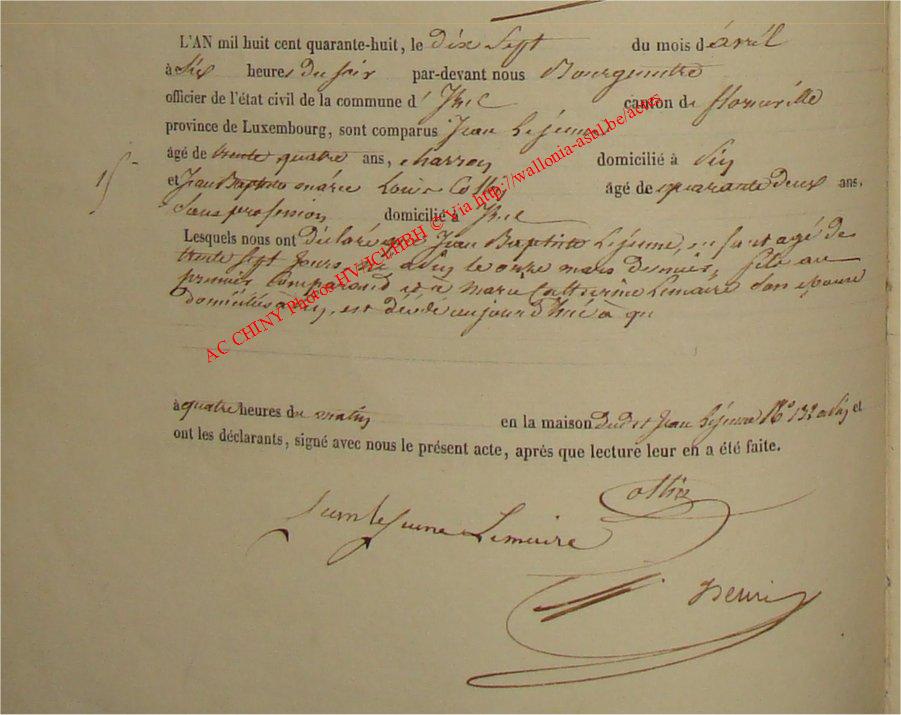 L'AN mil huit cent quarante-huit, le dix sept du mois d'avril
à six heures du soir par-devant nous Bourgmestre
officier de l'état civil de la commune d' Izel canton de florenville
province de Luxembourg, sont comparus Jean Lejeune,
âgé de trente quatre ans, charron domicilié à
15
et Jean Baptiste marie Louis âgé de quarante deux ans,
Sans profession domicilié à Izel
Lesquels nous ont déclaré que Jean Baptiste Lejeune, enfant agé de
trente sept jours, né le onze mars dernier, fils au
premier Comparand et à marie Catherine Lemaire son épouse
domiciliés à est décédé aujourd'hui à
à quatre heures du matin en la maison dudit Jean Lejeune No 132 et
ont les déclarants, signé avec nous le présent acte, après que lecture leur en a été faite.
Lejeune Lemaire
henri
AC CHINY Photos HV-JCl-HBH © Via http://wallonia-asbl.be/acwe